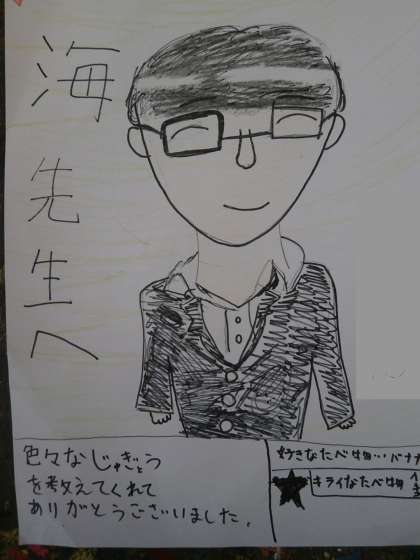 海先生へ
色々なじゅぎょう
を考えてくれて
ありがとうございました。
好きなたべ物…バナナ
キライなたべ物